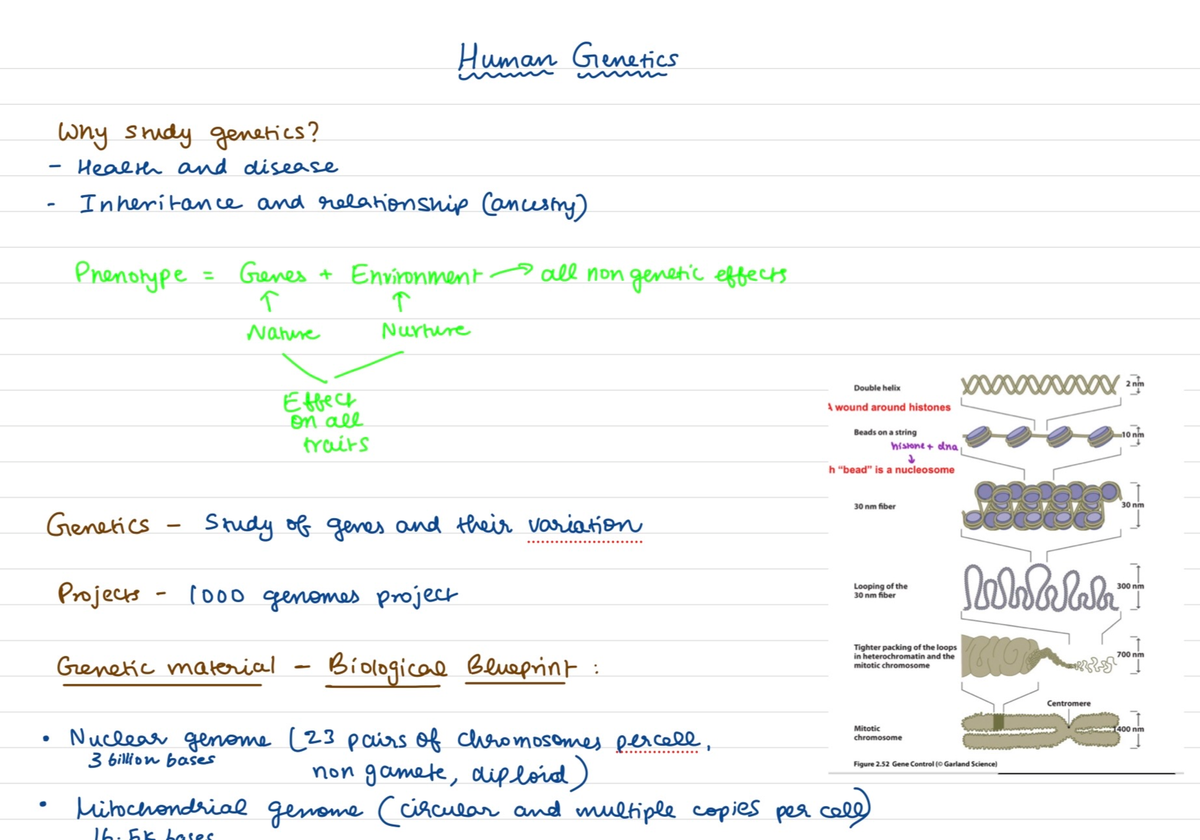 Human Genetics
Why study genetics?
- Health and disease
- Inheritance and relationship (ancestry)
Phenotype = Genes + Environment → all non genetic effects
↑ ↑
Nature Nurture
Effect
on all
traits
Genetics - Study of genes and their variation
Projects - 1000 genomes project
Genetic material - Biological Blueprint :
• Nuclear genome (23 pairs of chromosomes per cell,
3 billion bases
non gamete, diploid)
• Mitochondrial genome (circular and multiple copies per cell)
16.5k bases
Double helix
2 nm
A wound around histones
Beads on a string
10 nm
histone + dna
↓
h "bead" is a nucleosome
30 nm fiber
30 nm
Looping of the
30 nm fiber
300 nm
Tighter packing of the loops
in heterochromatin and the
mitotic chromosome
700 nm
Centromere
Mitotic
chromosome
1400 nm
Figure 2.52 Gene Control (© Garland Science)